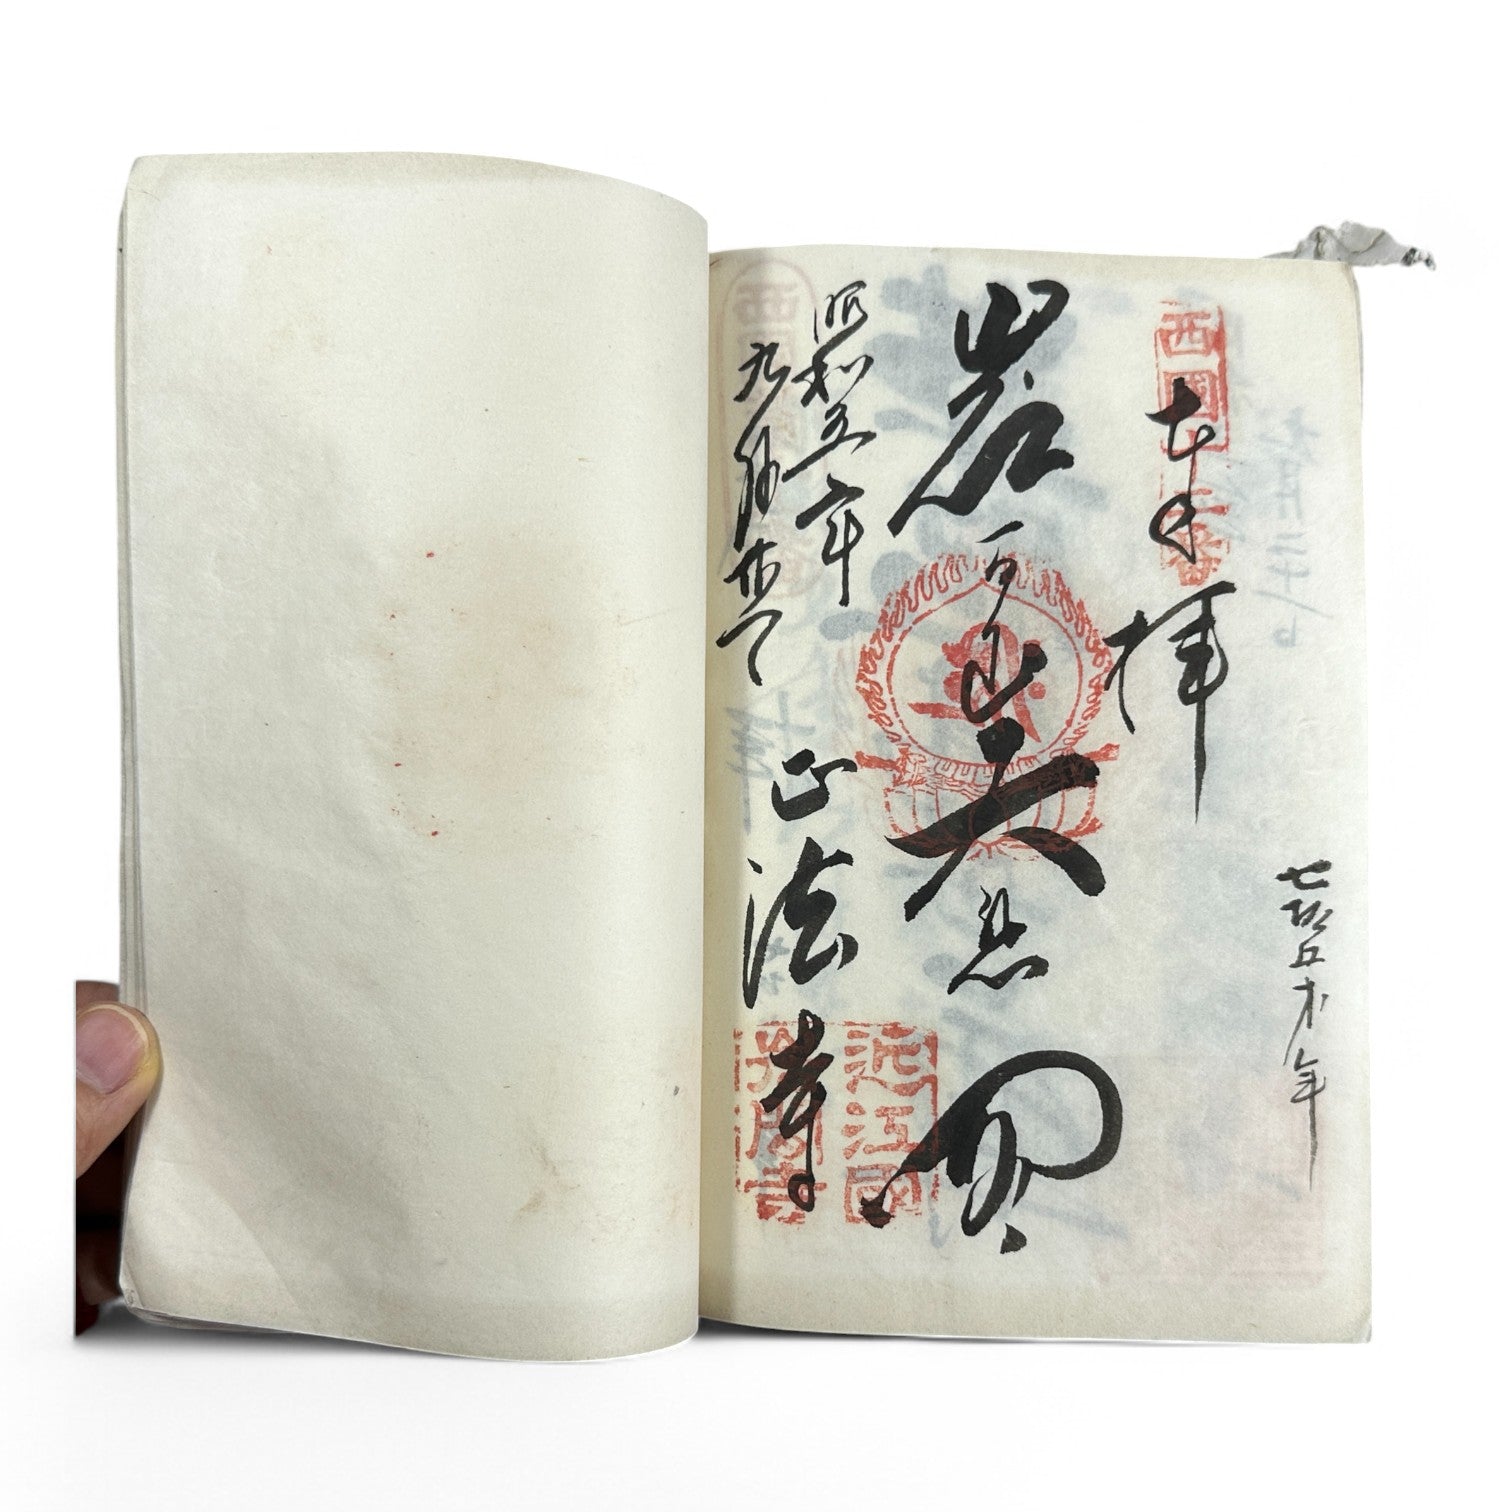 七拾五才年
西國十二番
奉拝
岩間山大悲閣
昭和五六年
九月廿
正法寺
近江國
岩間寺